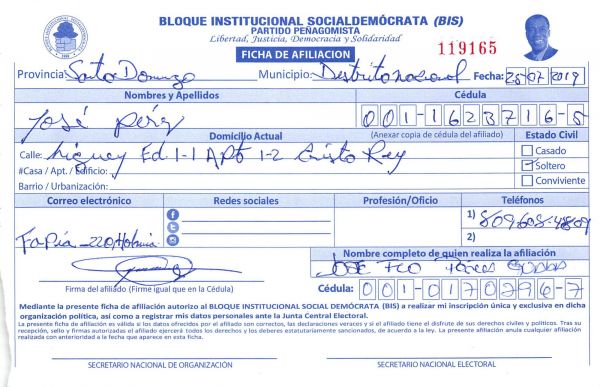 BLOQUE INSTITUCIONAL SOCIALDEMÓCRATA (BIS)
PARTIDO PEÑAGOMISTA
Libertad, Justicia, Democracia y Solidaridad
FICHA DE AFILIACION
119165
Provincia: Santo Domingo Municipio: Distrito nacional Fecha: 25/07/2019
Nombres y Apellidos Cédula
José Pérez 001-1623716-5
Domicilio Actual (Anexar copia de cédula del afiliado) Estado Civil
Calle: higuey Ed. 1-1 Apto 1-2 Cristo Rey
#Casa / Apt. / Edificio:
Barrio / Urbanización:
Casado
Soltero
Conviviente
Correo electrónico Redes sociales Profesión/Oficio Teléfonos
1) 809608-4809
2)
Tapia_220Hotmia
Nombre completo de quien realiza la afiliación
JOSE Fco
Firma del afiliado (Firme igual que en la Cédula)
Cédula: 001-0170296-7
Mediante la presente ficha de afiliación autorizo al BLOQUE INSTITUCIONAL SOCIAL DEMÓCRATA (BIS) a realizar mi inscripción única y exclusiva en dicha
organización política, así como a registrar mis datos personales ante la Junta Central Electoral.
La presente ficha de afiliación es válida si los datos ofrecidos por el afiliado son correctos, las declaraciones veraces y si el afiliado tiene el disfrute de sus derechos civiles y políticos. Tras su
recepción, sello y firmas autorizadas el afiliado ejercerá todos los derechos y los deberes estatutariamente sancionados, de acuerdo a la ley. La presente afiliación anula cualquier afiliación
realizada con anterioridad a la fecha que aparece en esta ficha.
SECRETARIO NACIONAL DE ORGANIZACIÓN SECRETARIO NACIONAL ELECTORAL